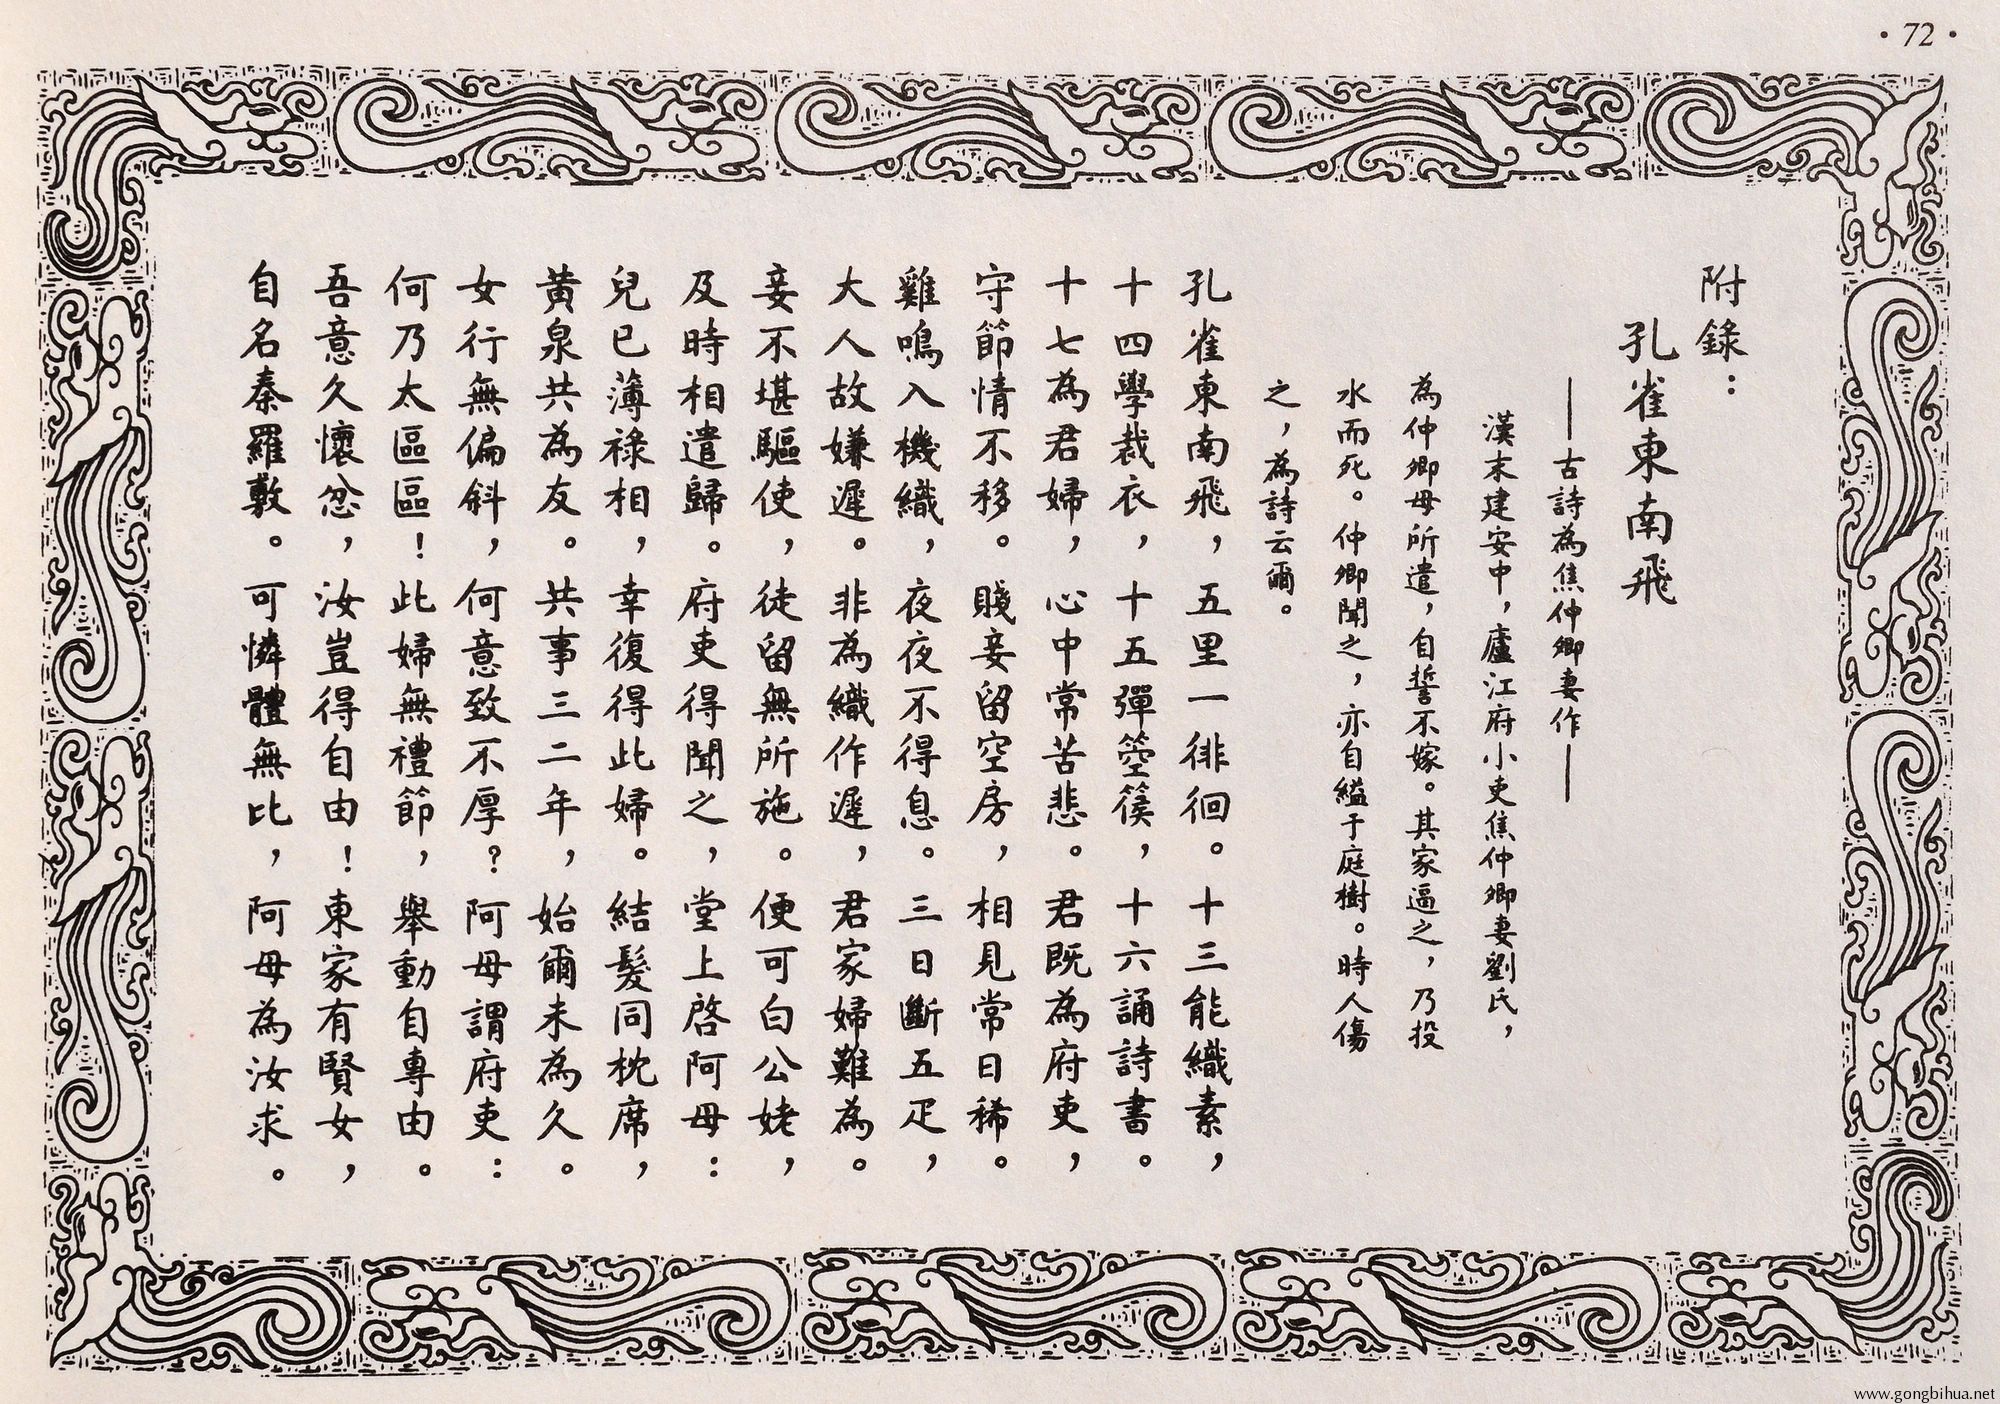 ·72·
附錄：
孔雀東南飛
——古詩為焦仲卿妻作——
漢末建安中，廬江府小吏焦仲卿妻劉氏，
為仲卿母所遣，自誓不嫁。其家逼之，乃投
水而死。仲卿聞之，亦自縊于庭樹。時人傷
之，為詩云爾。
孔雀東南飛，五里一徘徊。十三能織素，
十四學裁衣，十五彈箜篌，十六誦詩書。
十七為君婦，心中常苦悲。君既為府吏，
守節情不移。賤妾留空房，相見常日稀。
雞鳴入機織，夜夜不得息。三日斷五疋，
大人故嫌遲。非為織作遲，君家婦難為。
妾不堪驅使，徒留無所施。便可白公姥，
及時相遣歸。府吏得聞之，堂上啓阿母：
兒已薄祿相，幸復得此婦。結髮同枕席，
黃泉共為友。共事三二年，始爾未為久。
女行無偏斜，何意致不厚？阿母謂府吏：
何乃太區區！此婦無禮節，舉動自專由。
吾意久懷忿，汝豈得自由！東家有賢女，
自名秦羅敷。可憐體無比，阿母為汝求。
www.gongbihua.net